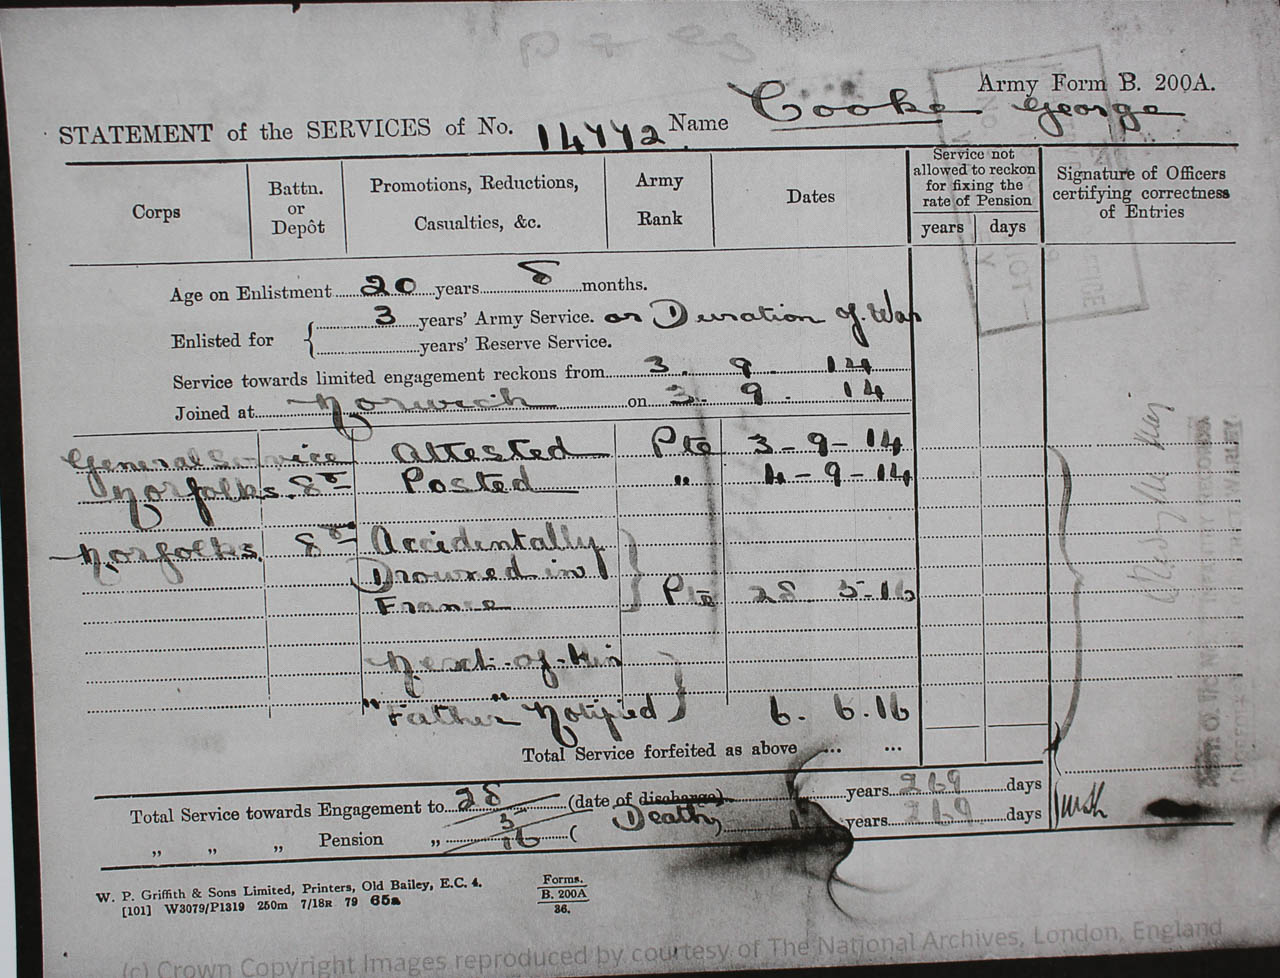 Army Form B. 200A.
STATEMENT of the SERVICES of No. 14772 Name Cooke George
Corps
Battn. or Depôt
Promotions, Reductions, Casualties, &c.
Army Rank
Dates
Service not allowed to reckon for fixing the rate of Pension
years days
Signature of Officers certifying correctness of Entries
Age on Enlistment 20 years 8 months.
Enlisted for { 3 years' Army Service. or Duration of War
years' Reserve Service.
Service towards limited engagement reckons from 3. 9. 14
Joined at Norwich on 3. 9. 14
General Service Attested Pte 3-9-14
Norfolks. 8th Posted " 4-9-14
Norfolks. 8th Accidentally
Drowned in
France Pte 28 5-16
Next-of-Kin
"Father" Notified 6. 6.16
Total Service forfeited as above ... ...
Total Service towards Engagement to 28 (date of discharge) 1 years 269 days
5
„ „ „ Pension „ 16 ( Death) 1 years 269 days
W. P. Griffith & Sons Limited, Printers, Old Bailey, E.C. 4.
[101] W3079/P1319 250m 7/18R 79 65a
Forms.
B. 200A
36.
(c) Crown Copyright Images reproduced by courtesy of The National Archives, London, England